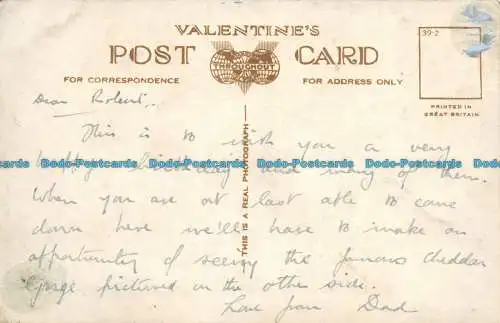 VALENTINE'S
POST CARD
THROUGHOUT
FOR CORRESPONDENCE
FOR ADDRESS ONLY
39-2
PRINTED IN
GREAT BRITAIN
THIS IS A REAL PHOTOGRAPH
Dear Robert,
This is to wish you a very
happy birthday and many of them.
When you are at last able to come
down here we'll have to make an
opportunity of seeing the famous cheddar
Gorge pictured on the other side.
Love from Dad
Dodo-Postcards Dodo-Postcards Dodo-Postcards Dodo-Postcards Dodo-Postcards Dodo-Postcards